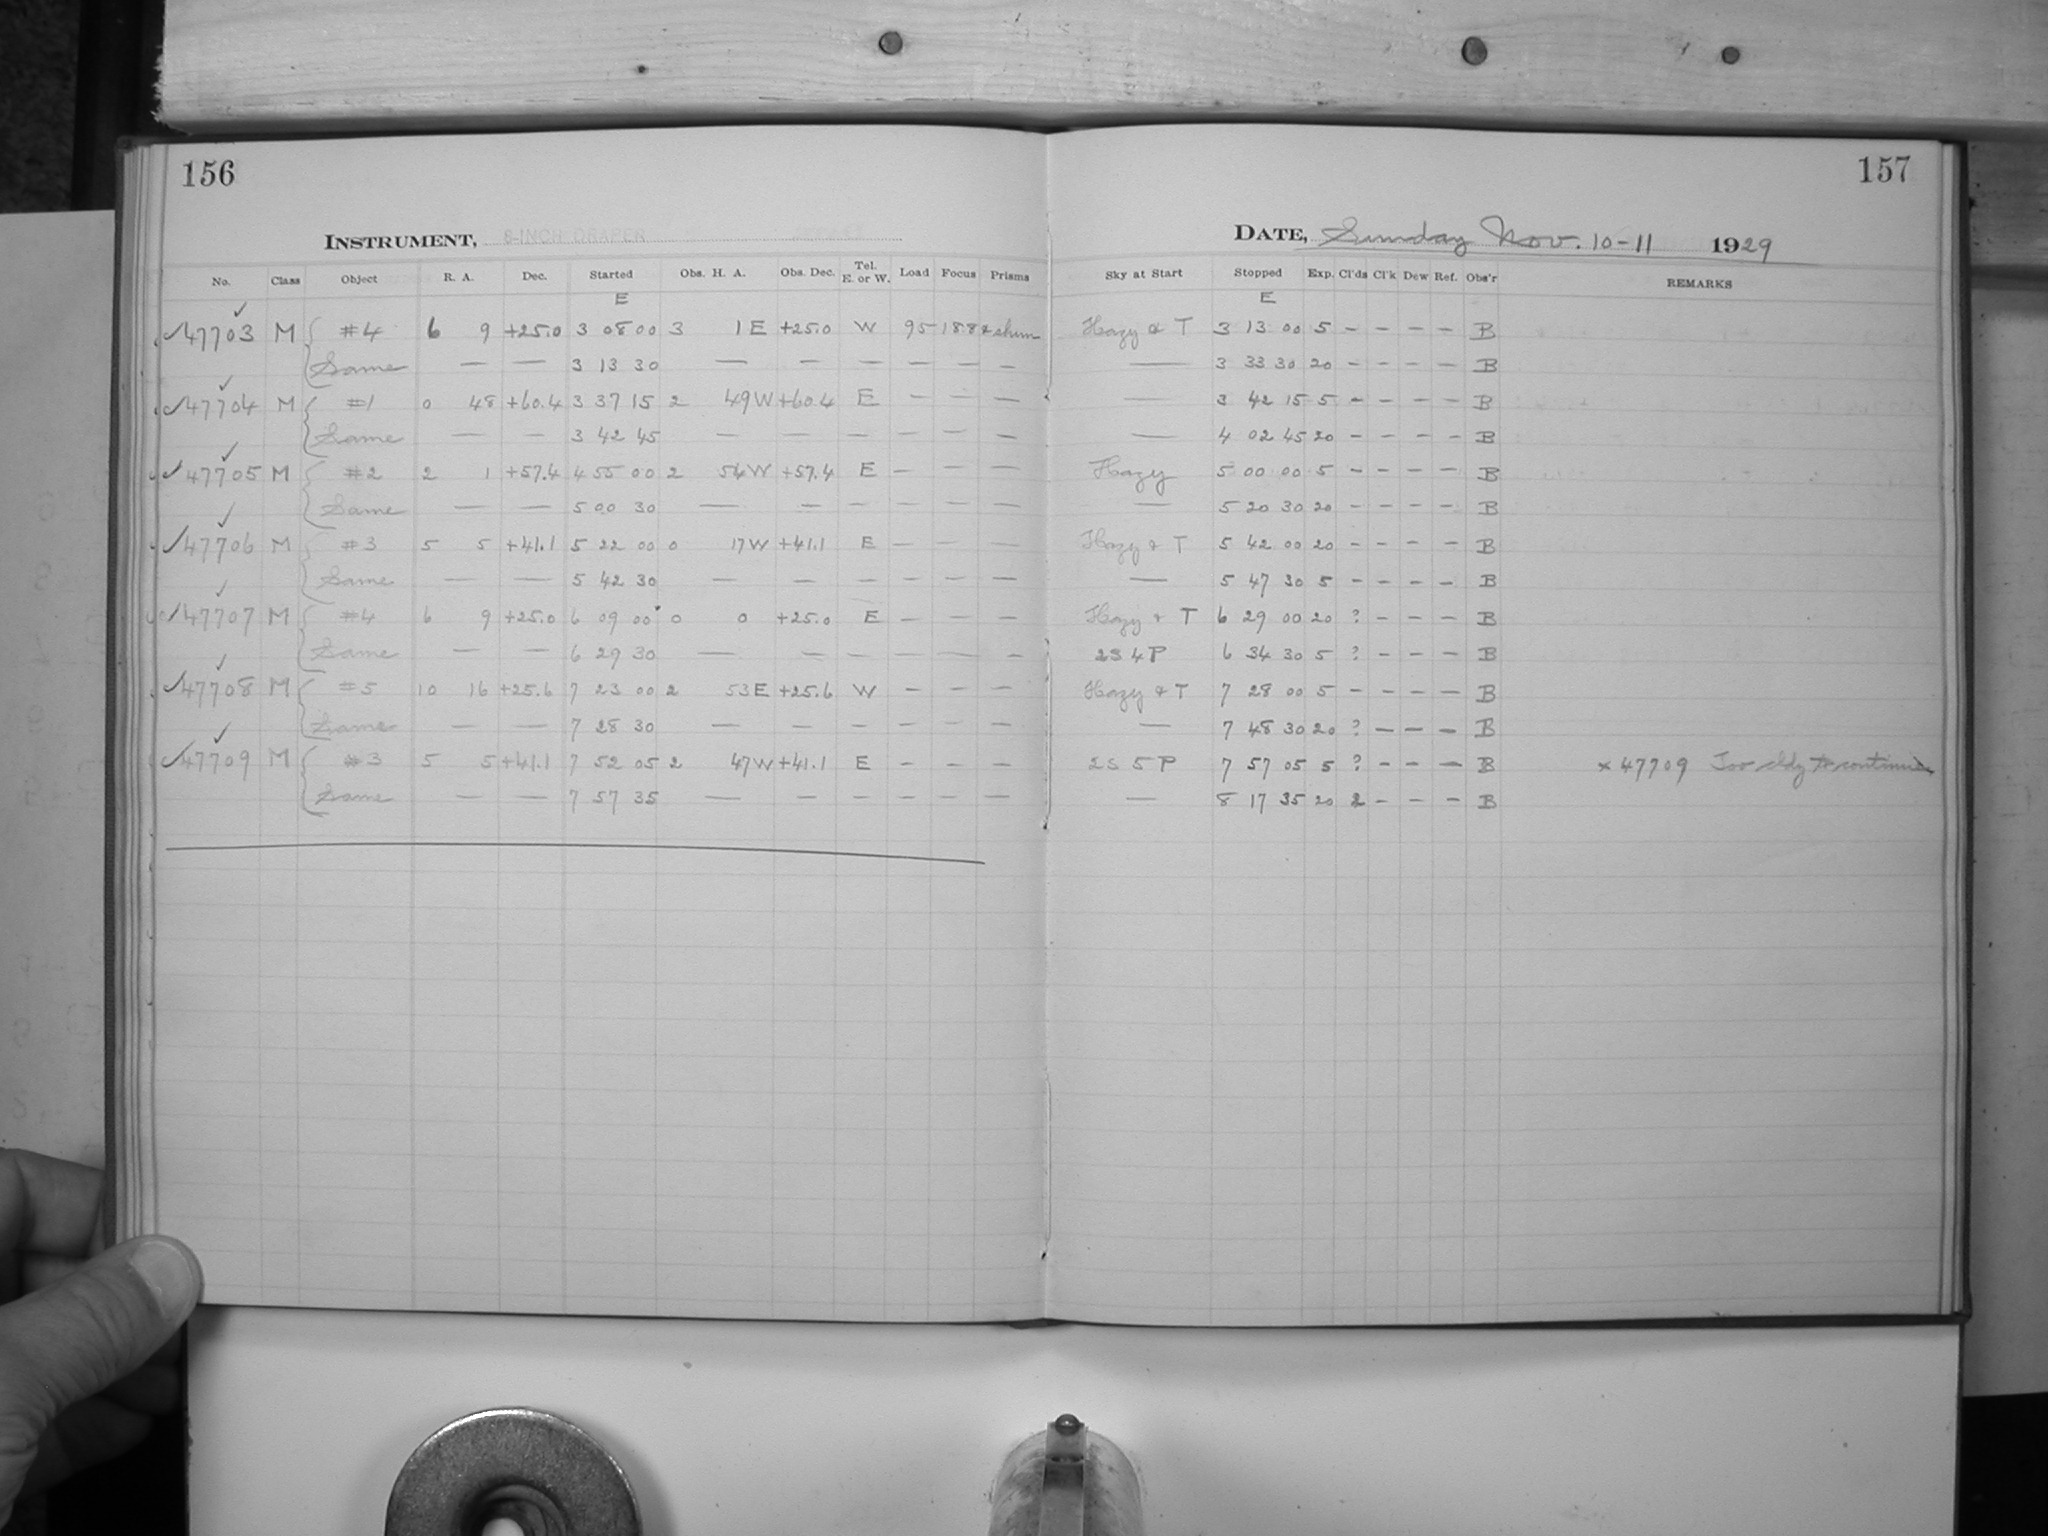 156
157
INSTRUMENT, 8-INCH DRAPER
DATE, Sunday Nov. 10-11 1929
No. Class Object R. A. Dec. Started Obs. H. A. Obs. Dec. Tel. E. or W. Load Focus Prisms Sky at Start Stopped Exp. Cl'ds Cl'k Dew Ref. Obs'r REMARKS
E E
✓47703 M { #4 6 9 +25.0 3 08 00 3 1 E +25.0 W 95 188 Hazy & T 3 13 00 5 – – – – B
Same — — 3 13 30 — — — — — — — 3 33 30 20 – – – – B
✓47704 M { #1 0 48 +60.4 3 37 15 2 49 W +60.4 E — — — — 3 42 15 5 – – – – B
Same — — 3 42 45 — — — — — — — 4 02 45 20 – – – – B
✓47705 M { #2 2 1 +57.4 4 55 00 2 54 W +57.4 E — — — Hazy 5 00 00 5 – – – – B
Same — — 5 00 30 — — — — — — — 5 20 30 20 – – – – B
✓47706 M { #3 5 5 +41.1 5 22 00 0 17 W +41.1 E — — — Hazy & T 5 42 00 20 – – – – B
Same — — 5 42 30 — — — — — — — 5 47 30 5 – – – – B
✓47707 M { #4 6 9 +25.0 6 09 00 0 0 +25.0 E — — — Hazy & T 6 29 00 20 ? – – – B
Same — — 6 29 30 — — — — — — 2S 4P 6 34 30 5 ? – – – B
✓47708 M { #5 10 16 +25.6 7 23 00 2 53 E +25.6 W — — — Hazy & T 7 28 00 5 – – – – B
Same — — 7 28 30 — — — — — — — 7 48 30 20 ? – – – B
✓47709 M { #3 5 5 +41.1 7 52 05 2 47 W +41.1 E — — — 2S 5P 7 57 05 5 ? – – – B × 47709 Too cldy to continue
Same — — 7 57 35 — — — — — — — 8 17 35 20 2 – – – B